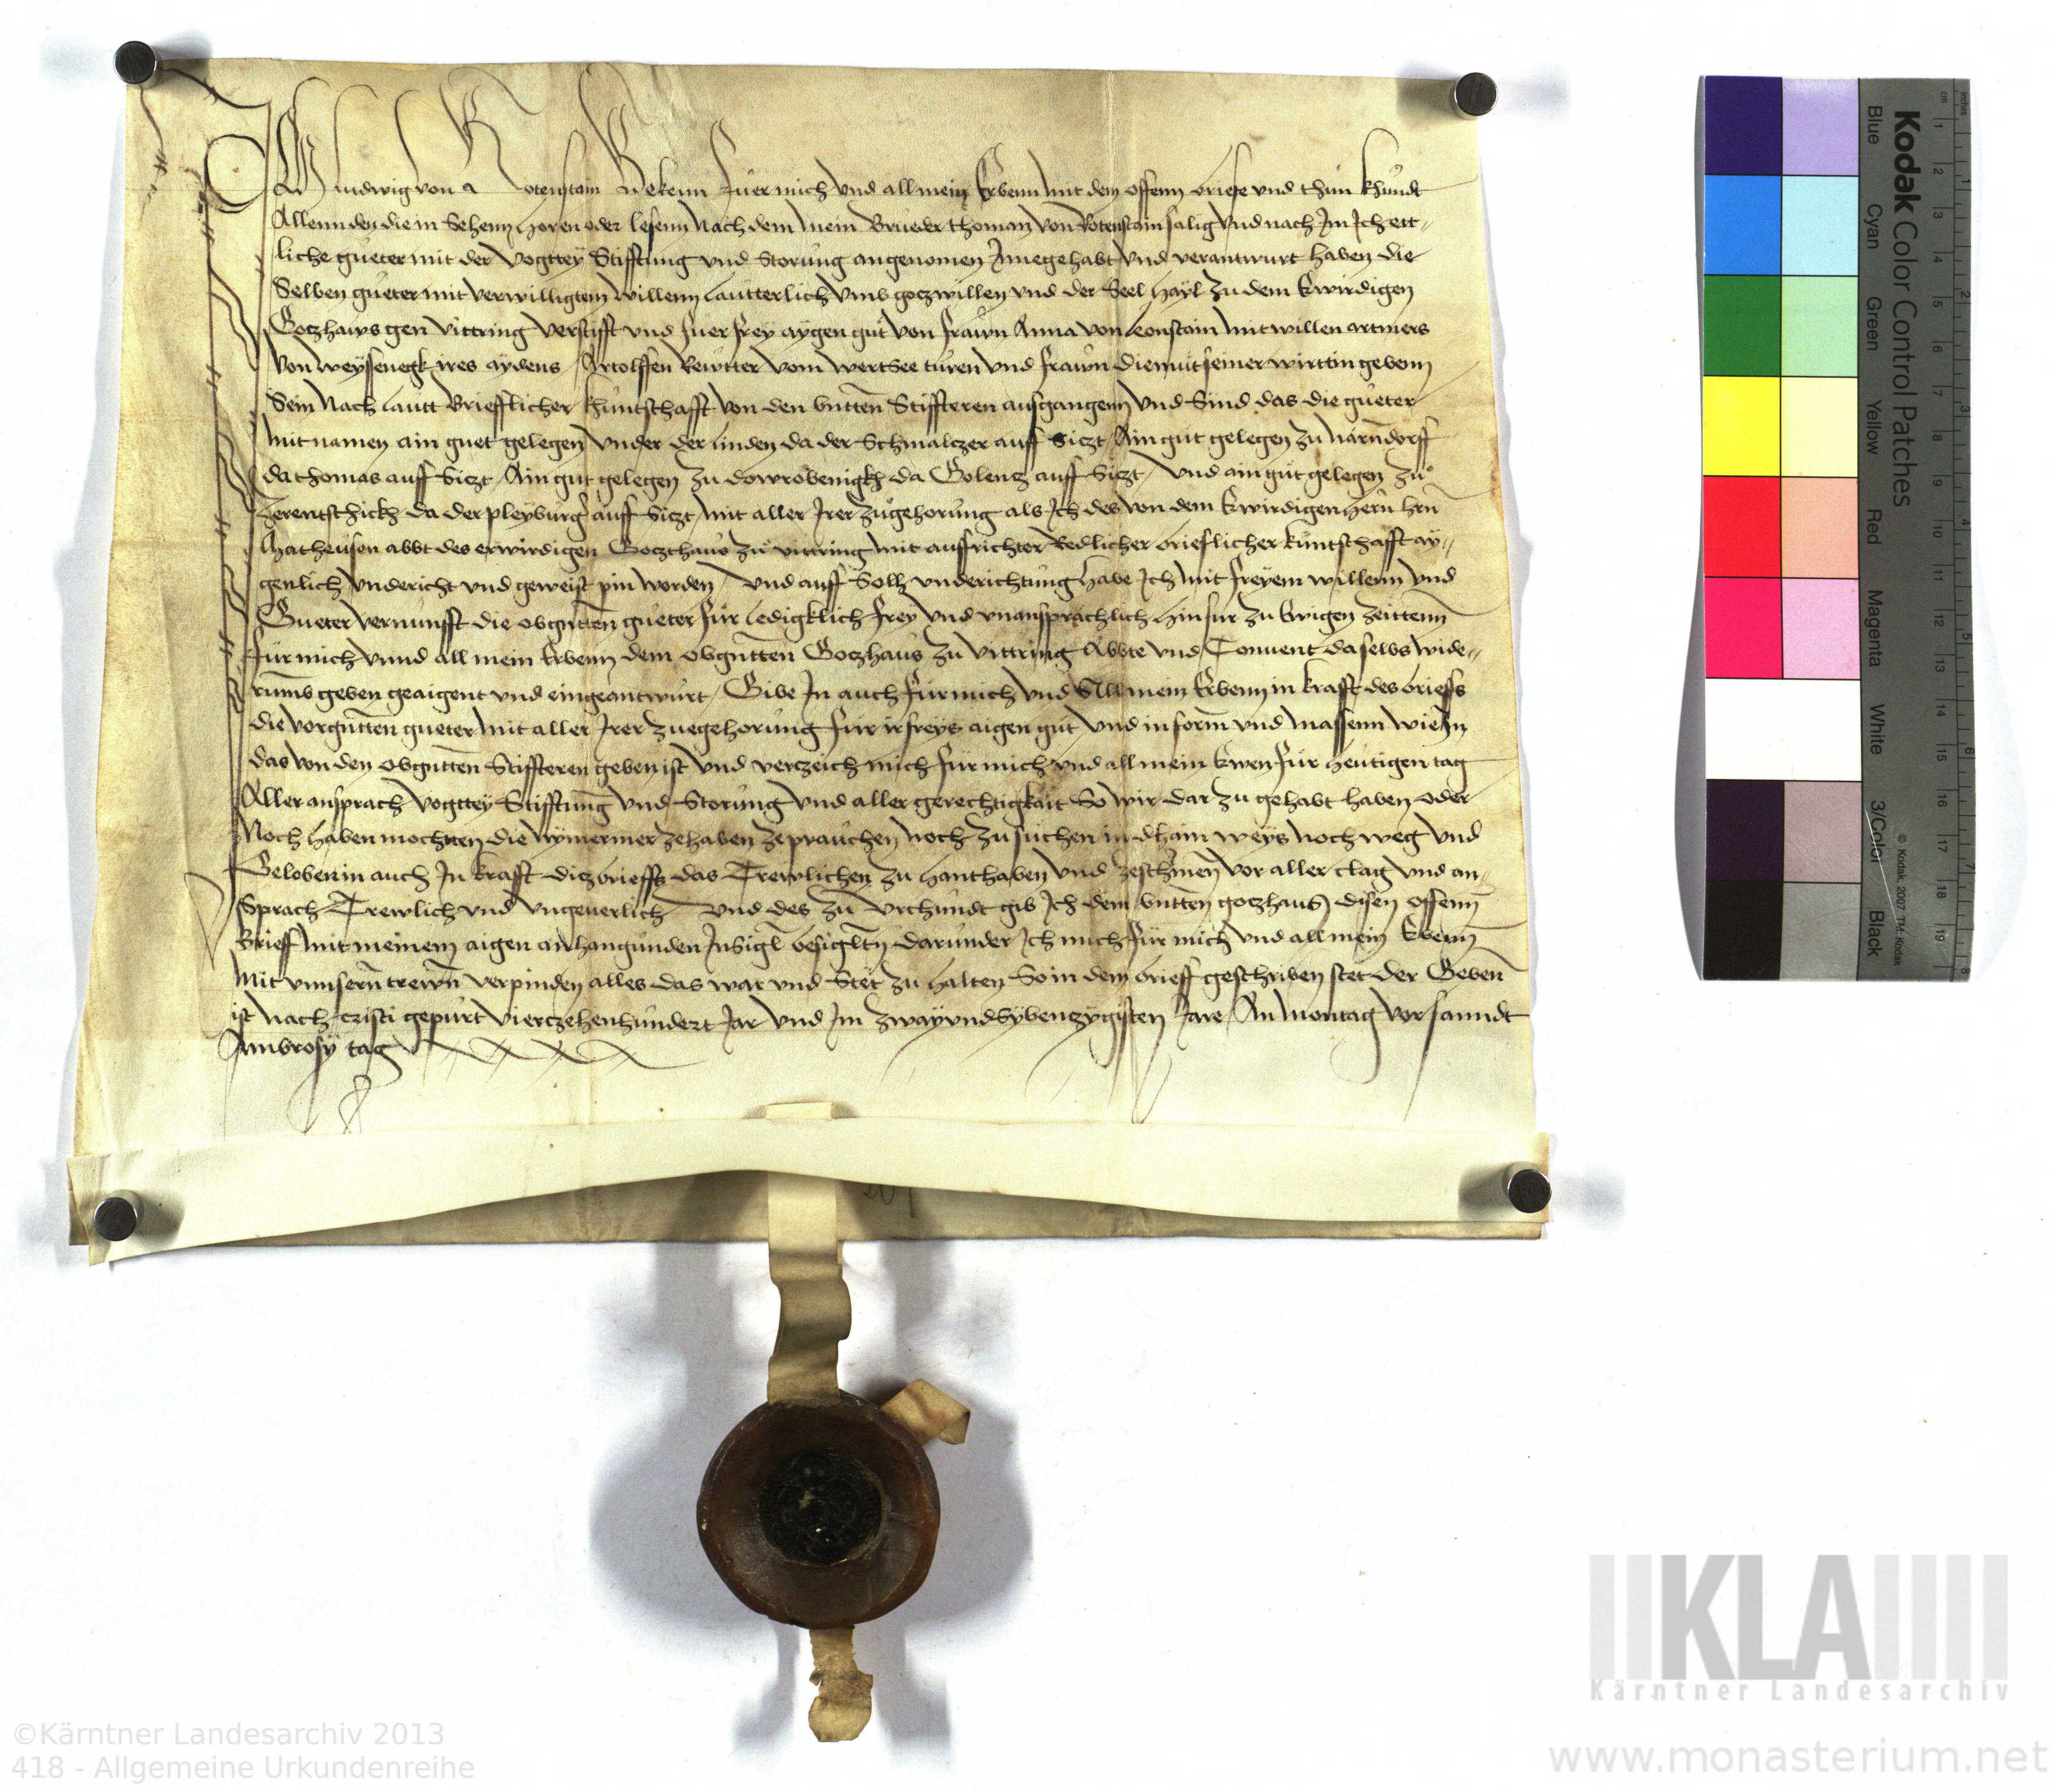 Ich Ludwig von Rotenstain Bekenn Fuer mich vnd all mein Erbenn mit dem offenn briefe vnd thun khundt
Allenn den die in Sehenn horen oder lesenn Nach dem mein Brueder thoman von Rotenstain salig vnd nach Im Ich ett-
liche gueter mit der vogttey Stifftung vnd Storung angenomen Innegehabt vnd verantwurt haben die
Selben gueter mit verwilligtem willenn lautterlich vmb goczwillen vnd der Seel hayl zu dem Erwirdigen
Goczhaws gen vittring verstifft vnd fuer frey aygen gut von frawn Anna von leonstain mit willen artners
von weyssenegk ires aydens Artolffen Rewtter vom wertsee turen vnd frawn diemut seiner wirttin gebenn
Sein Nach lautt briefflicher khuntschafft von den bntten Stiffteren ausgangenn vnd Sind das die gueter
mit namen ain guet gelegen vnder der linden da der Schmalczer auff siczt Ain gut gelegen zu Narndorff
da thomas auff siczt Ain gut gelegen zu dowrobenigkh da Golencz auff siczt vnd ain gut gelegen zu
zerentschickh da der pleyburg auff siczt mit aller Irer zugehorung als Ich des von dem Erwirdigen hern hrn
Matheusen abbt des erwirdigen Goczthaus zu vittring mit aufrichter Redlicher brieflicher kuntschafft ay-
genlich vndericht vnd geweist pin worden vnd auff Solh vnderichtung habe Ich mit freyem willenn vnd
Gueter vernunfft die obgntten gueter fur ledigklich frey vnd vnansprachlich hinfur zu Ewigen zeittenn
fur mich vnnd all mein Erbenn dem obgntten Goczhaus zu vittring Abbte vnd Conuent daselbs wide-
rumb geben geaigent vnd eingeantwurt Gibe In auch fur mich vnd All mein Erbenn in krafft des brieffs
die vorgntten gueter mit aller Irer zuegehorung fur ir freys aigen gut vnd in form vnd massenn wie In
das von den obgntten Stiffteren geben ist vnd verzeich mich fur mich vnd all mein Erben fur heutigen tag
Aller ansprach vogttey Stifftung vnd Storung vnd aller gerechtigkait So wir dar zu gehabt haben oder
Noch haben mochtten die nymermer zehaben zeprauchen noch zu suchen in dhain weys noch weg vnd
Geloben in auch In krafft dicz brieffs das Trewlichen zu hanthaben vnd zeschirmen vor aller clag vnd an-
Sprach Trewlich vnd vngeuerlich vnd des zu vrchundt gib Ich dem bntten goczhaus disen offenn
Brieff mit meinem aigen anhangunden Insigl besiglten darunder Ich mich fur mich vnd all mein Erbenn
Mit vnnsern trewn verpinden alles das war vnd Stet zu halten So in dem brieff geschriben stet Der Geben
ist Nach cristi gepurt vierczehenhundert Jar vnd Im zwayvndsybenczygisten Jare An Montag vor sanndt
Ambrosy tag
Kodak Color Control Patches
Blue Cyan Green Yellow Red Magenta White 3/Color Black
© Kodak, 2007 TM: Kodak
cm 1 2 3 4 5 6 7 8 9 10 11 12 13 14 15 16 17 18 19
inches 1 2 3 4 5 6 7 8
KLA
Kärntner Landesarchiv
©Kärntner Landesarchiv 2013
418 - Allgemeine Urkundenreihe
www.monasterium.net